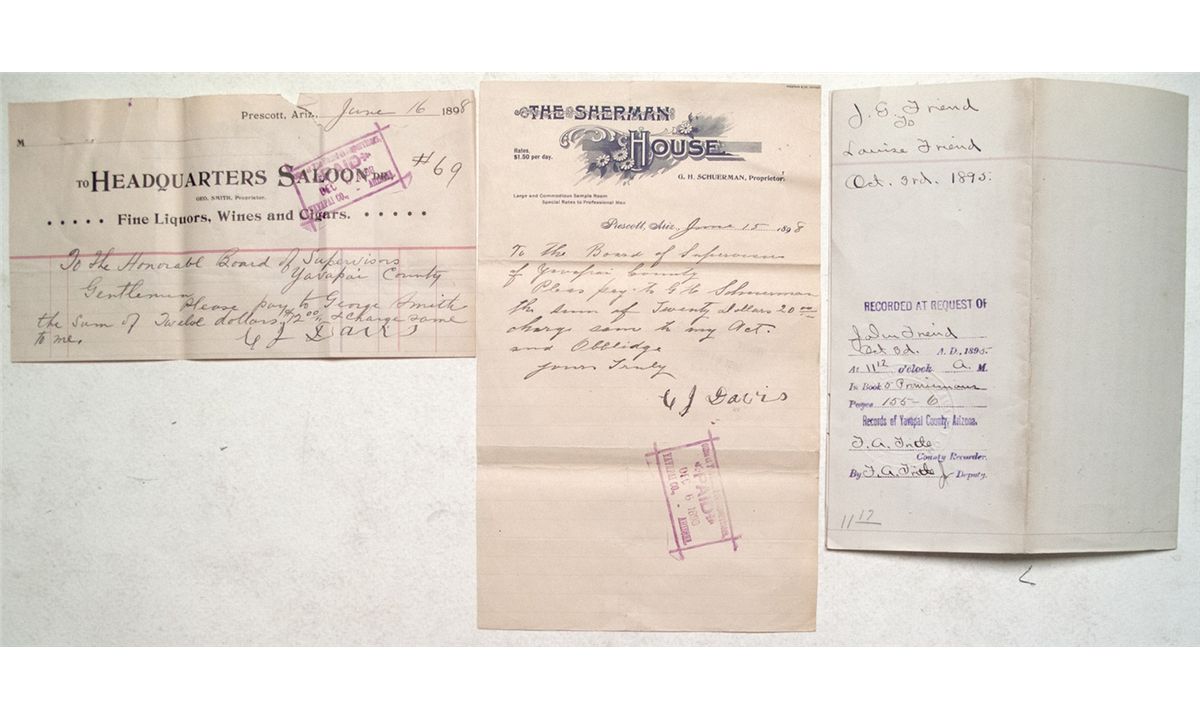 Prescott, Ariz., June 16 1898
M
#69
TO HEADQUARTERS SALOON, DR.
GEO. SMITH, Proprietor.
PAID
DEC
YAVAPAI CO., ARIZONA
Fine Liquors, Wines and Cigars.
To The Honorable Board of Supervisors
Yavapai County
Gentlemen
Please pay to George Smith
the Sum of Twelve dollars & charge same
to me.
C J Davis
THE SHERMAN
HOUSE.
Rates.
$1.50 per day.
G. H. SCHUERMAN, Proprietor.
Large and Commodious Sample Room
Special Rates to Professional Men
Prescott, Ariz. June 15 1898
To the Board of Supervisors
of Yavapai County
Pleas pay to G H Schuerman
the sum of Twenty Dollars 20 00
charge sam to my Act.
and Obblidge
yours Truly
C J Davis
PAID
DEC 6 1898
YAVAPAI CO., ARIZONA
J. G. Friend
To
Louise Friend
Oct. 3rd. 1895.
RECORDED AT REQUEST OF
John Freind
Oct 3d. A. D., 1895.
At 11 12 o'clock A. M.
In Book 5 Promiscuous
Pages 155-6
Records of Yavapai County, Arizona.
County Recorder.
By Deputy.
11 12